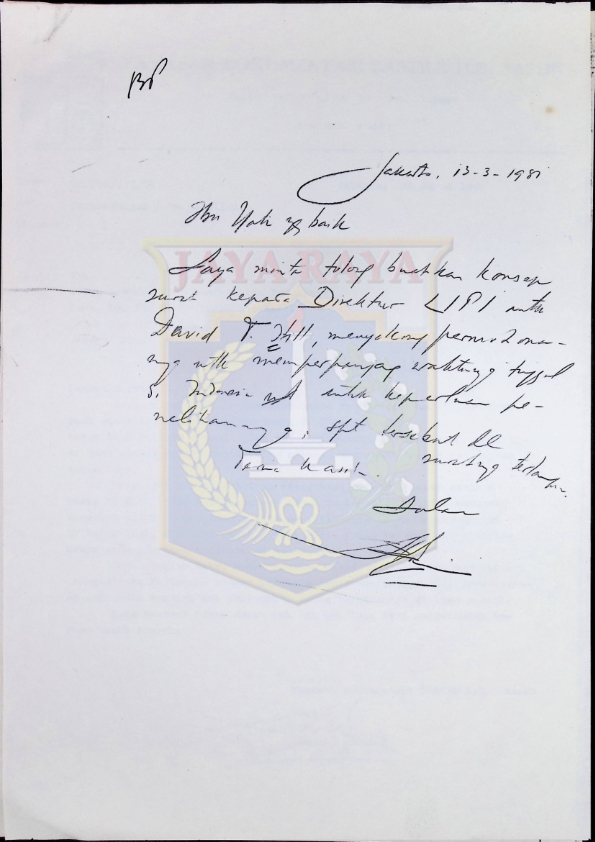 Jakarta, 13-3-1981
yg baik
JAYA RAYA
Saya minta tolong buatkan konsep
surat kepada Direktur LIPI untuk
David T. Hill, menyokong permohonan-
nya utk memperpanjang waktunya tinggal
di Indonesia untuk keperluan pe-
nelitiannya, spt tersebut dl
suratnya terlampir.
Terima kasih.
Salam